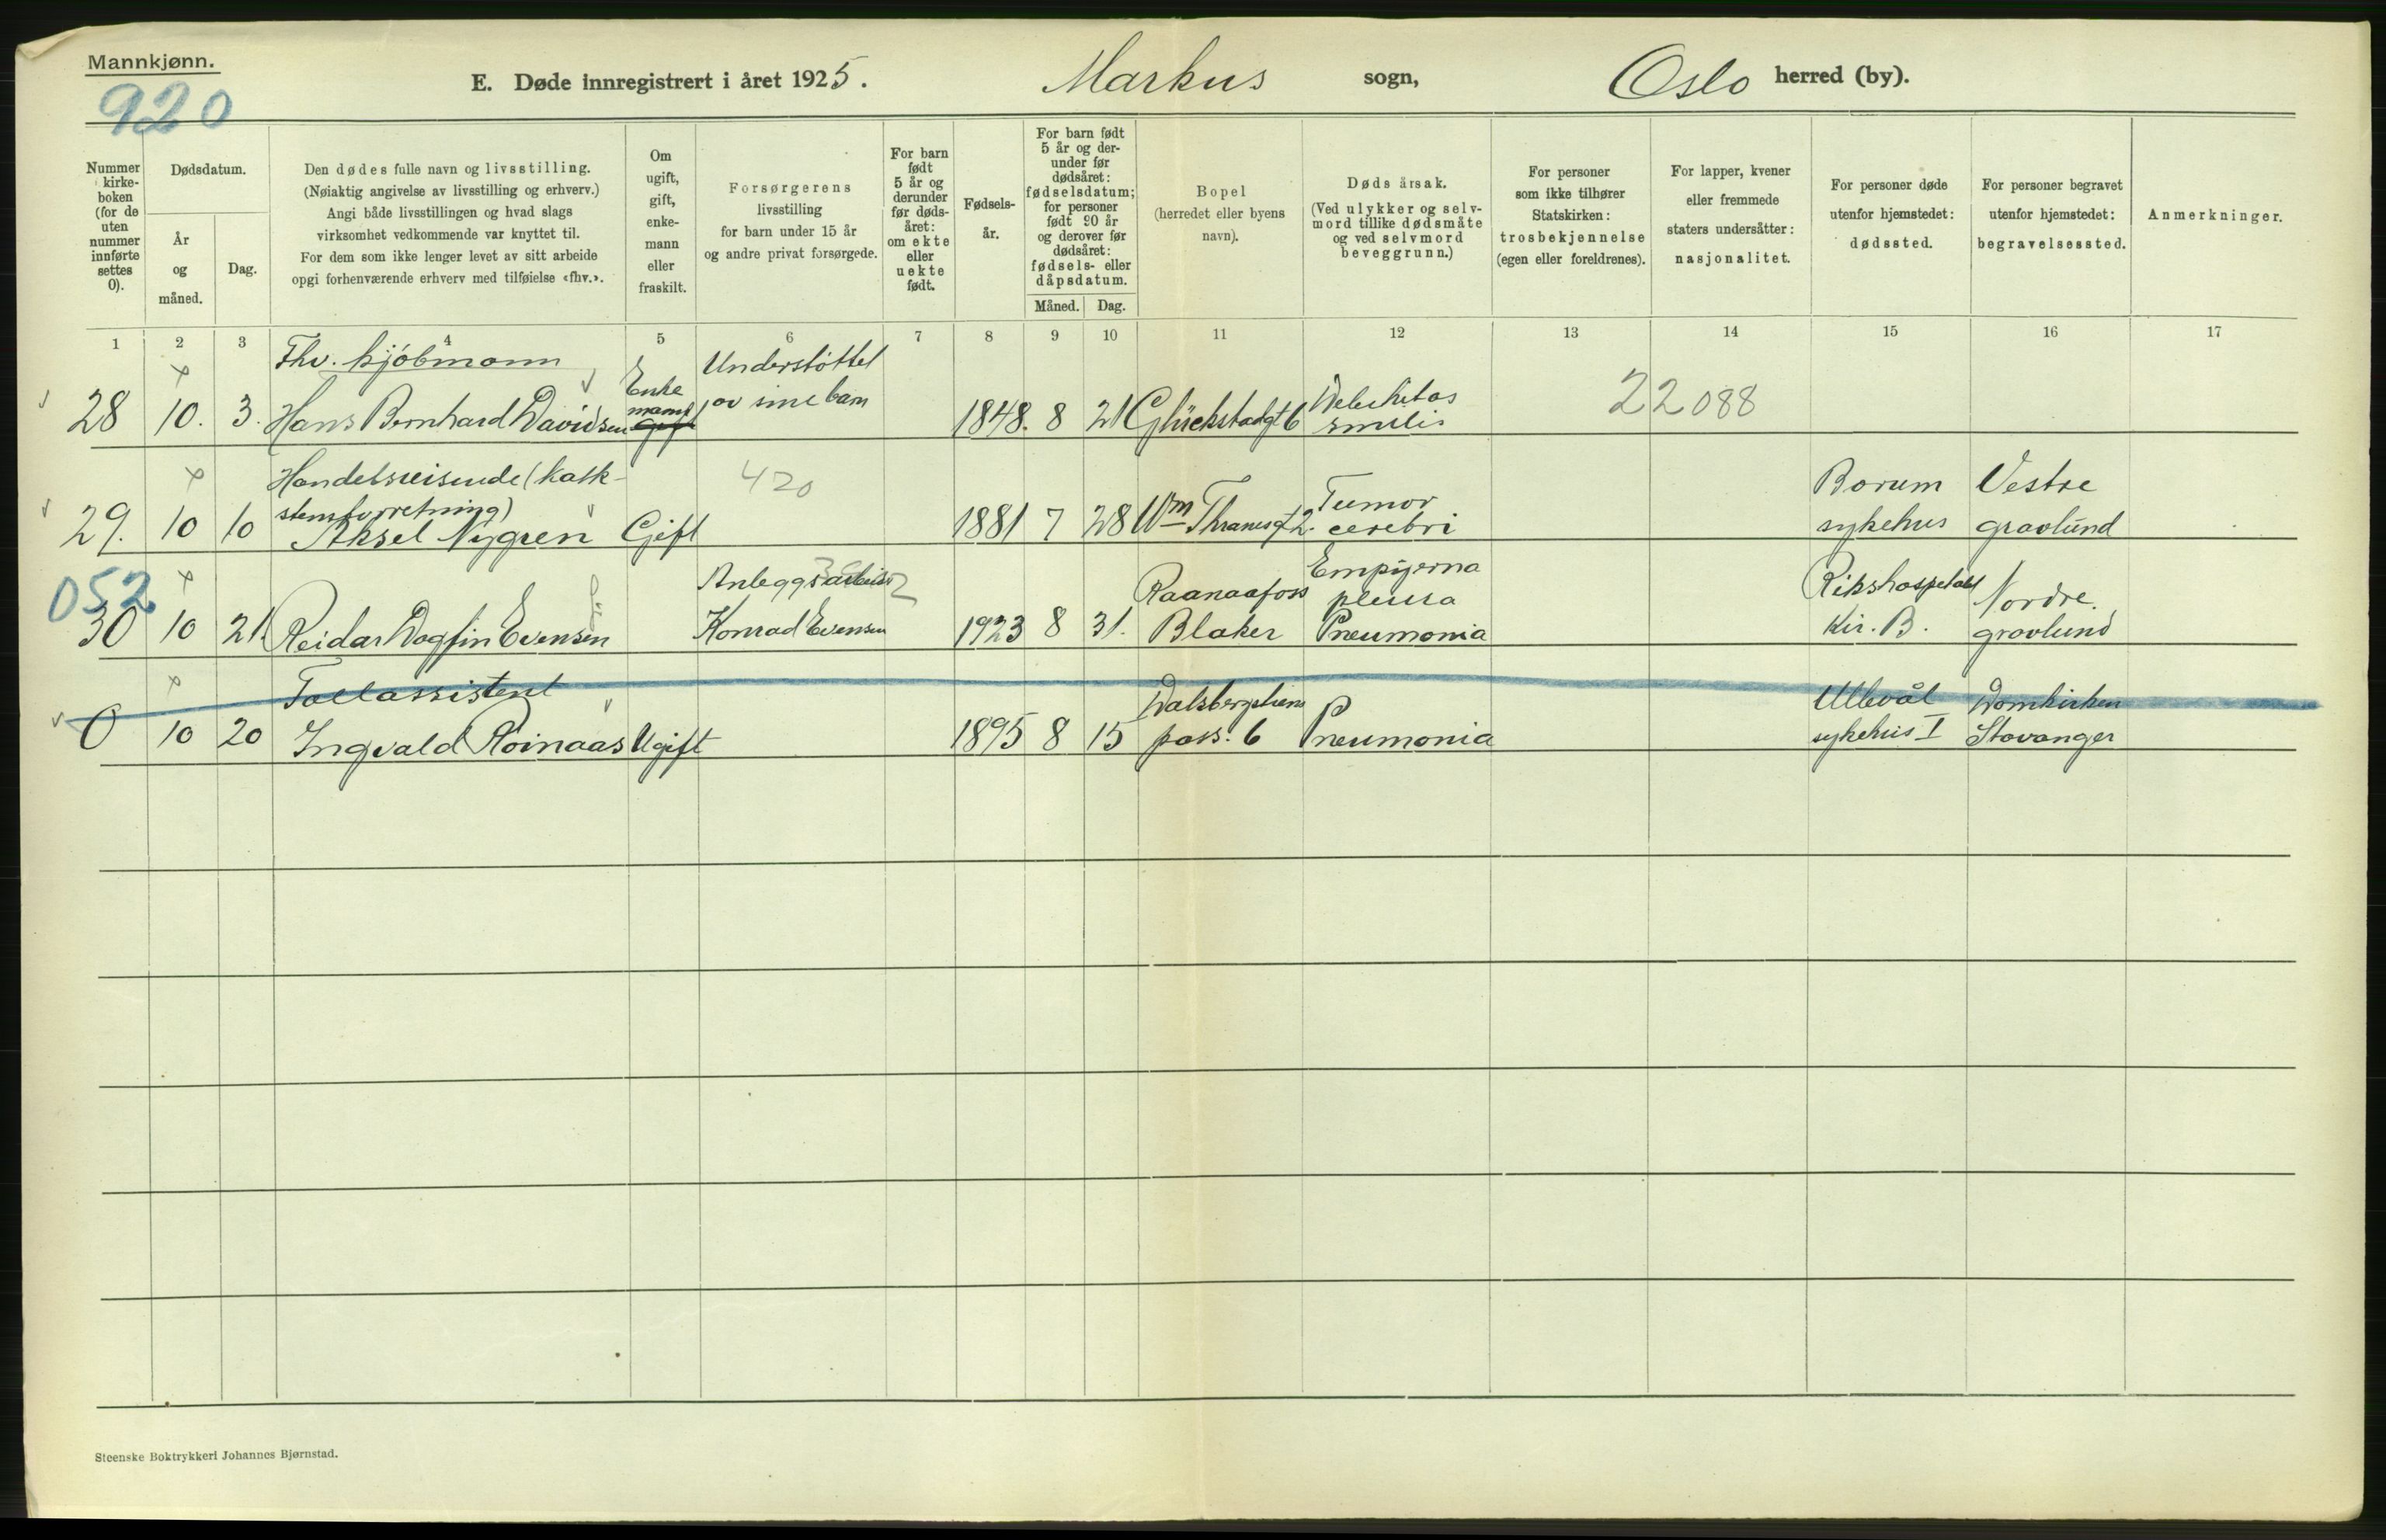 Mannkjønn.
920
E. Døde innregistrert i året 1925. Markus sogn, Oslo herred (by).
Nummer kirke-boken (for de uten nummer innførte settes 0).
Dødsdatum.
År og måned.
Dag.
Den dødes fulle navn og livsstilling.
(Nøiaktig angivelse av livsstilling og erhverv.)
Angi både livsstillingen og hvad slags
virksomhet vedkommende var knyttet til.
For dem som ikke lenger levet av sitt arbeide
opgi forhenværende erhverv med tilføielse «fhv.».
Om ugift, gift, enke-mann eller fraskilt.
Forsørgerens
livsstilling
for barn under 15 år
og andre privat forsørgede.
For barn født 5 år og derunder før døds-året: om ekte eller uekte født.
Fødsels-år.
For barn født 5 år og der-under før dødsåret: fødselsdatum; for personer født 90 år og derover før dødsåret: fødsels- eller dåpsdatum.
Måned. Dag.
Bopel
(herredet eller byens navn).
Dødsårsak.
(Ved ulykker og selv-mord tillike dødsmåte og ved selvmord beveggrunn.)
For personer
som ikke tilhører
Statskirken:
trosbekjennelse
(egen eller foreldrenes).
For lapper, kvener
eller fremmede
staters undersåtter:
nasjonalitet.
For personer døde
utenfor hjemstedet:
dødssted.
For personer begravet
utenfor hjemstedet:
begravelsessted.
Anmerkninger.
1 2 3 4 5 6 7 8 9 10 11 12 13 14 15 16 17
Fhv. kjøbmann
Understøttet
28 10. 3. Hans Bernhard Davidsen Enke mann Gift av sine barn 1848. 8 21 Glückstadgt 6 smilis 22088
Handelsreisende (kalk-
stensforretning)
420
Tumor
Borum
Vestre
29. 10 10 Aksel Nygren Gift 1881 7 28 Wm Thranesgt 2. cerebri sykehus gravlund
052
Anleggsarbeider
Raanaafoss
Empyema
pleura
Rikshospitalet
Nordre
30 10 21. Reidar Dagfin Evensen Konrad Evensen 1923 8 31. Blaker Pneumonia Kir. B. gravlund
Tollassistent
Dalsbergstiens
Ullevål
Domkirken
0 10 20 Ingvald Roinaas Ugift 1895 8 15 pass. 6 Pneumonia sykehus I Stavanger
Steenske Boktrykkeri Johannes Bjørnstad.